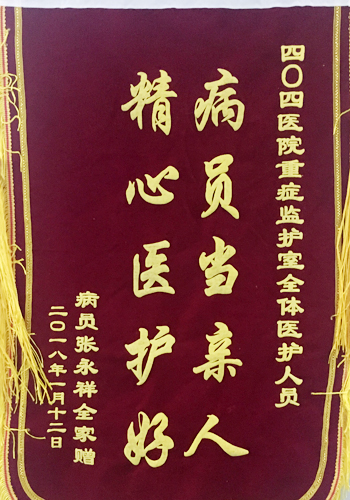 四〇四医院重症监护室全体医护人员
病员当亲人
精心医护好
病员张永祥全家赠
二〇一八年一月十二日